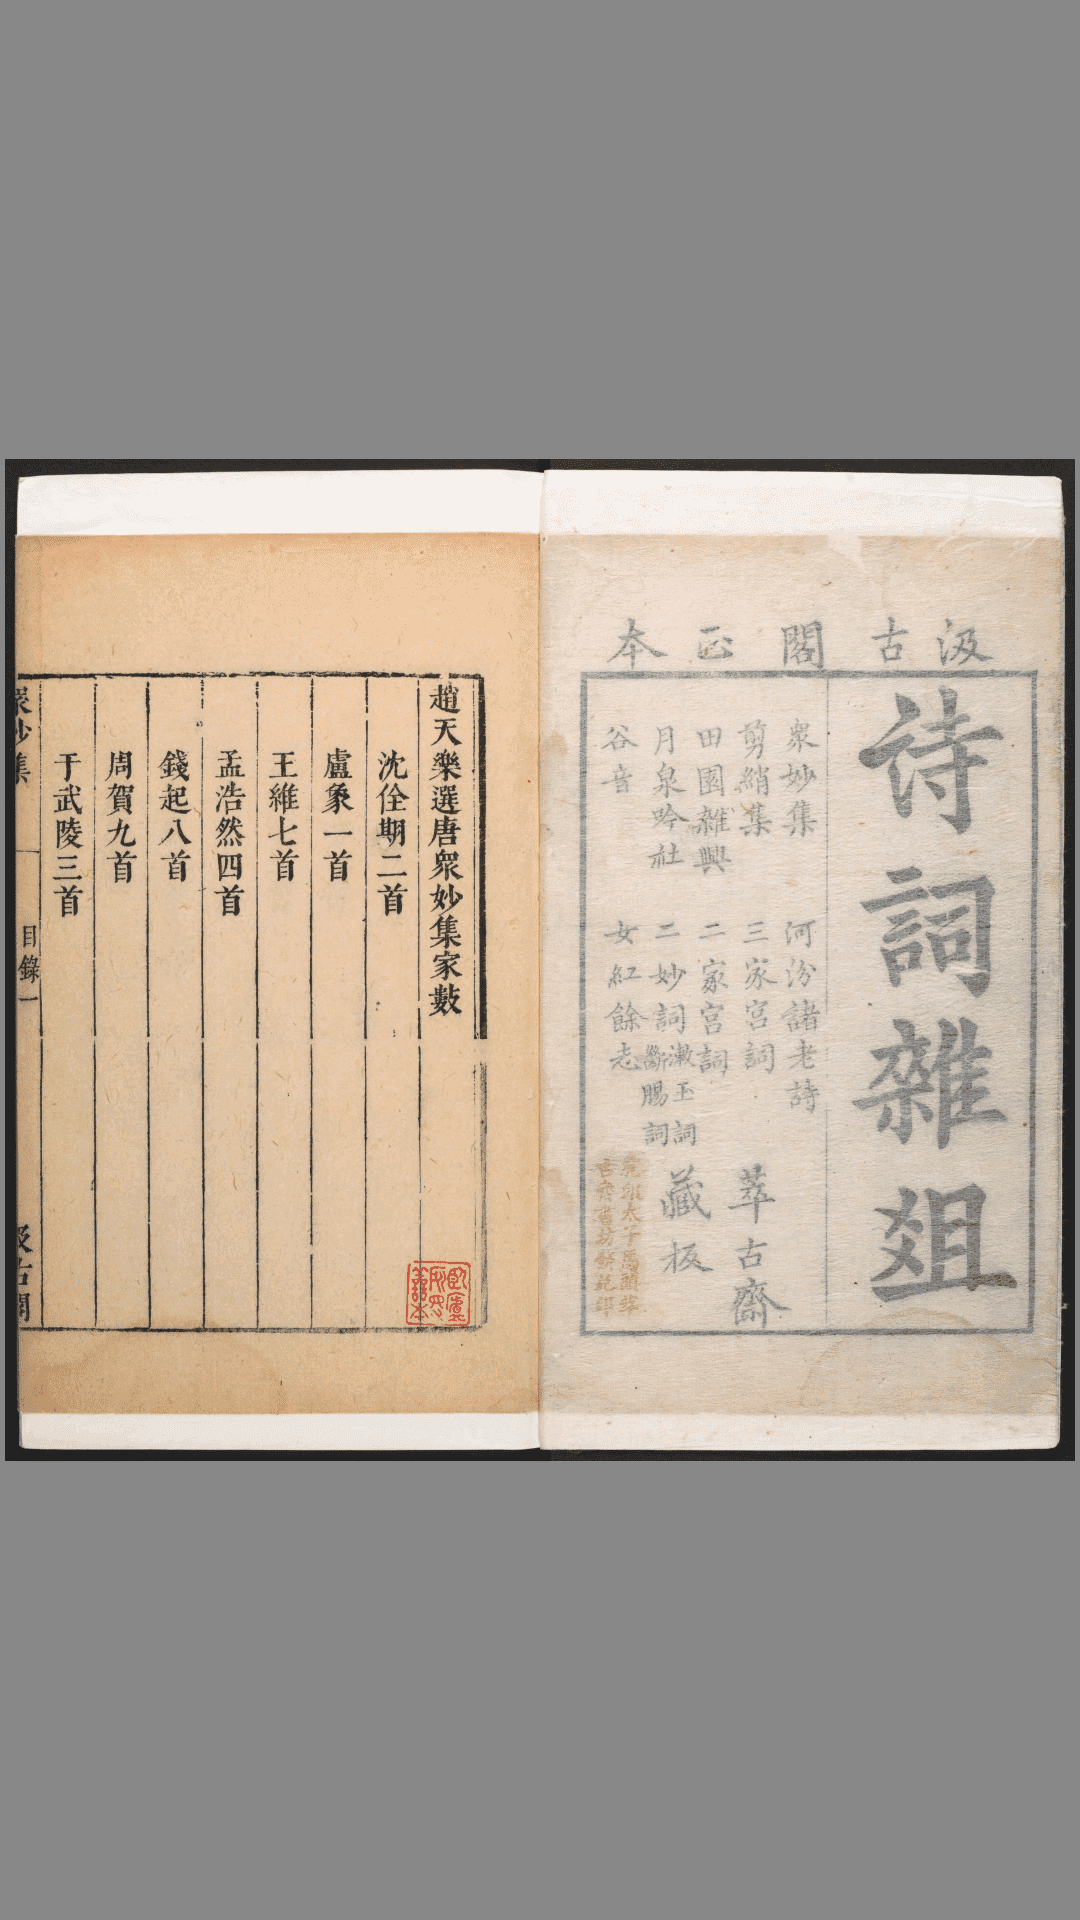 汲古閣正本
詩詞雜俎
衆妙集 河汾諸老詩
剪綃集 三家宮詞
田園雜興 二家宮詞
月泉吟社 二妙詞 漱玉詞 斷腸詞
谷音 女紅餘志
萃古齋
藏板
趙天樂選唐衆妙集家數
沈佺期二首
盧象一首
王維七首
孟浩然四首
錢起八首
周賀九首
于武陵三首
衆妙集 目錄一 汲古閣